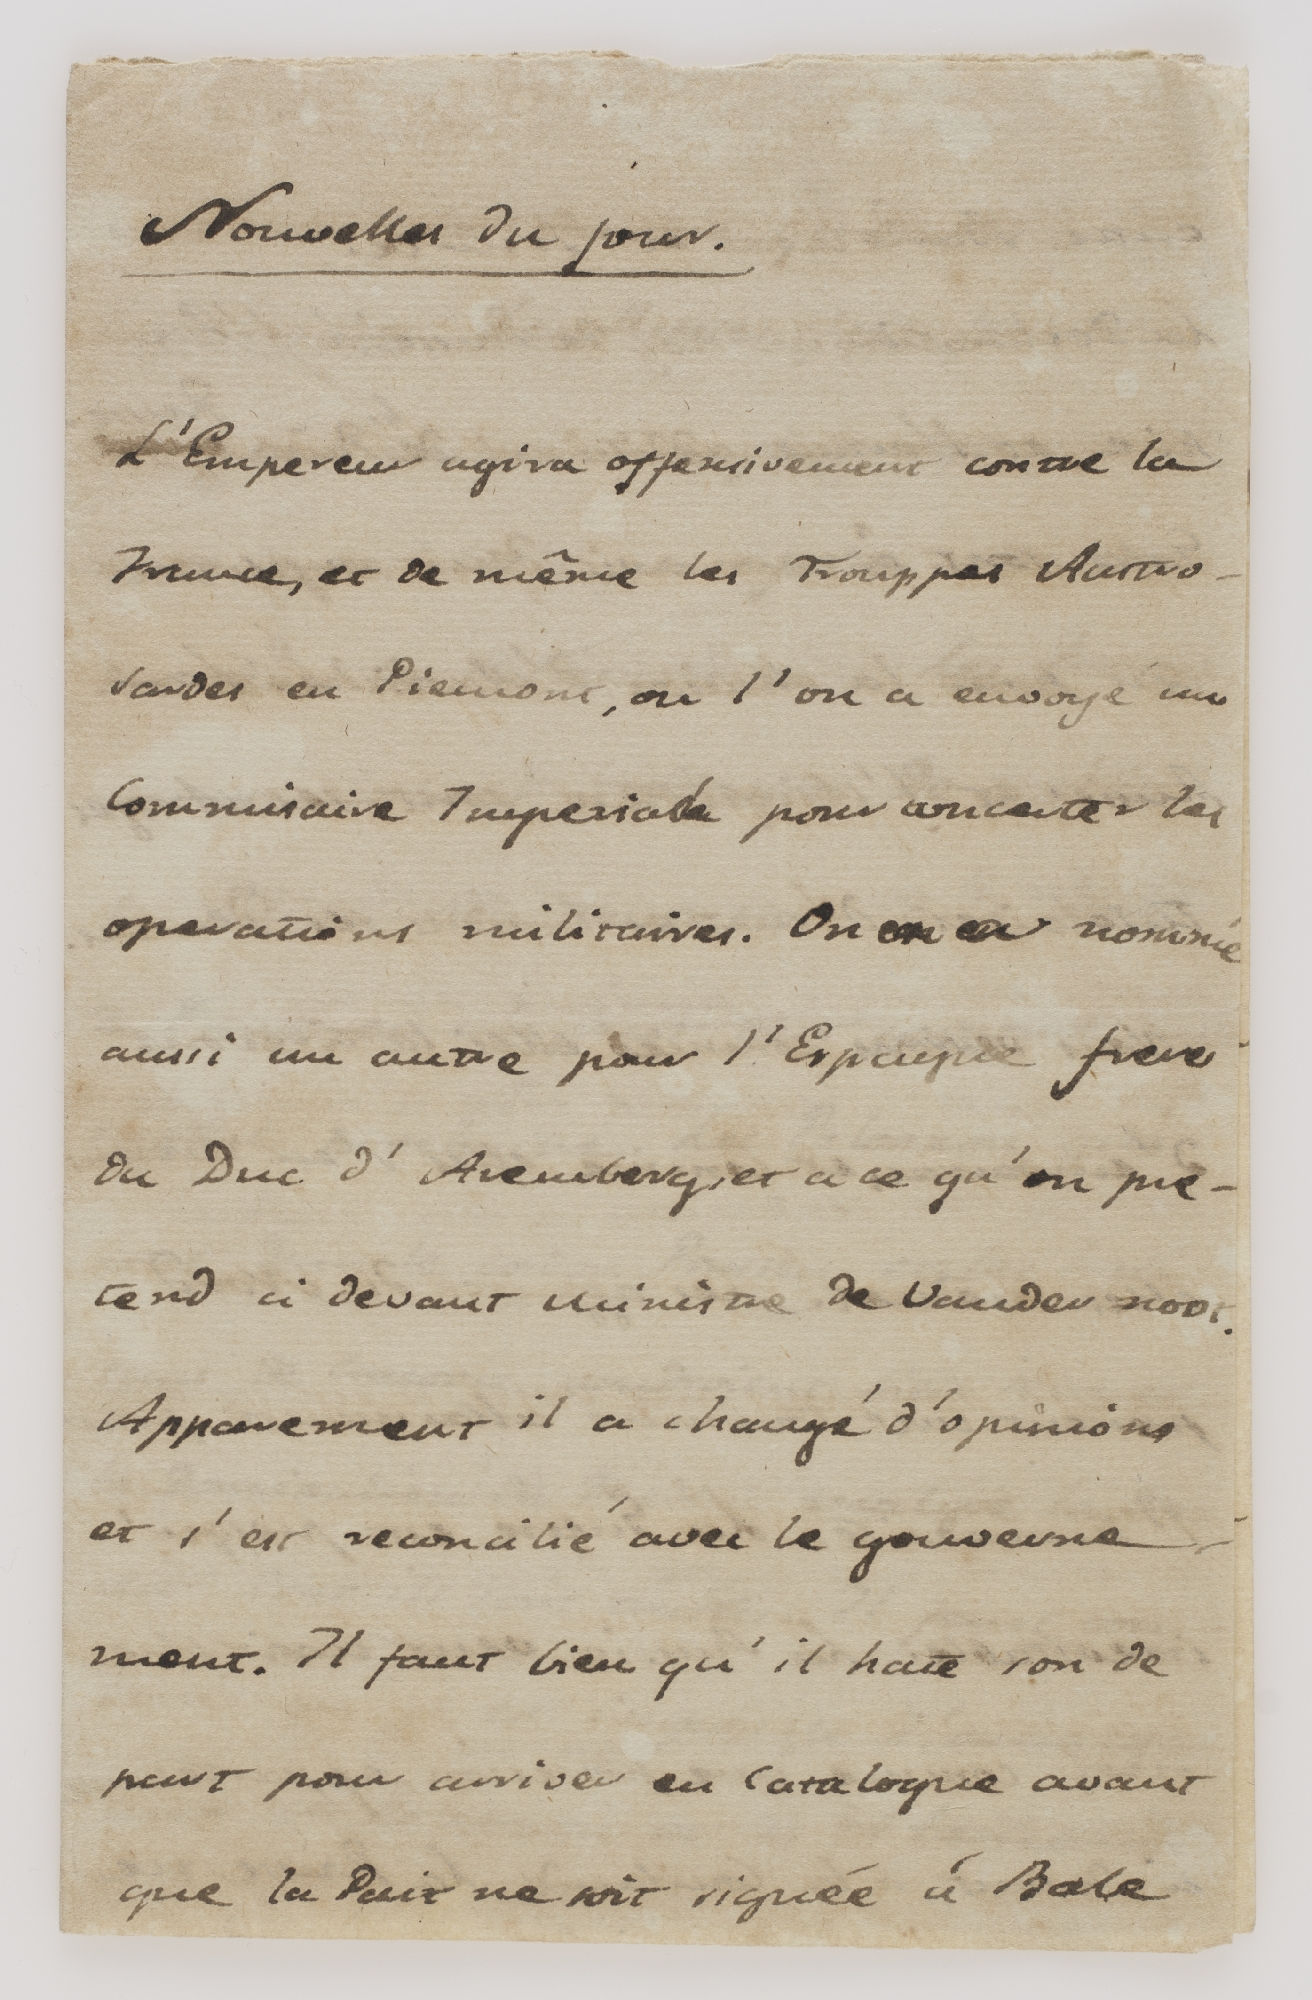 Nouvelles du jour.
L'Empereur agira offensivement contre la
France, et de même les Trouppes Austro-
sardes en Piemont, ou l'on a envoyé un
Commisaire Imperiale pour concerter les
operations militaires. On en nommé
aussi un autre pour l'Espagne frere
du Duc d'Aremberg, et a ce qu'on pre-
tend ci devant Ministre de Vander noot.
Apparement il a changé d'opinions
et s'est reconcilié avec le gouverne-
ment. Il faut bien qu'il hate son de
part pour arriver en Catalogne avant
que la Paix ne soit signée á Bale